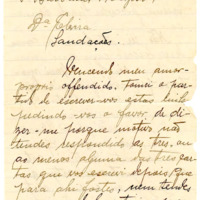 Da. Felicia
Saudações.
Vencendo meu amor-
proprio offendido, tomei o par-
tido de escrever-vos estas linhas
pedindo-vos o favor de di-
zer-me porque motivo não
tendes respondido as tres, ou
ao menos alguma das tres car-
tas que vos escrevi depois que
para ahi fostes, nem tendes